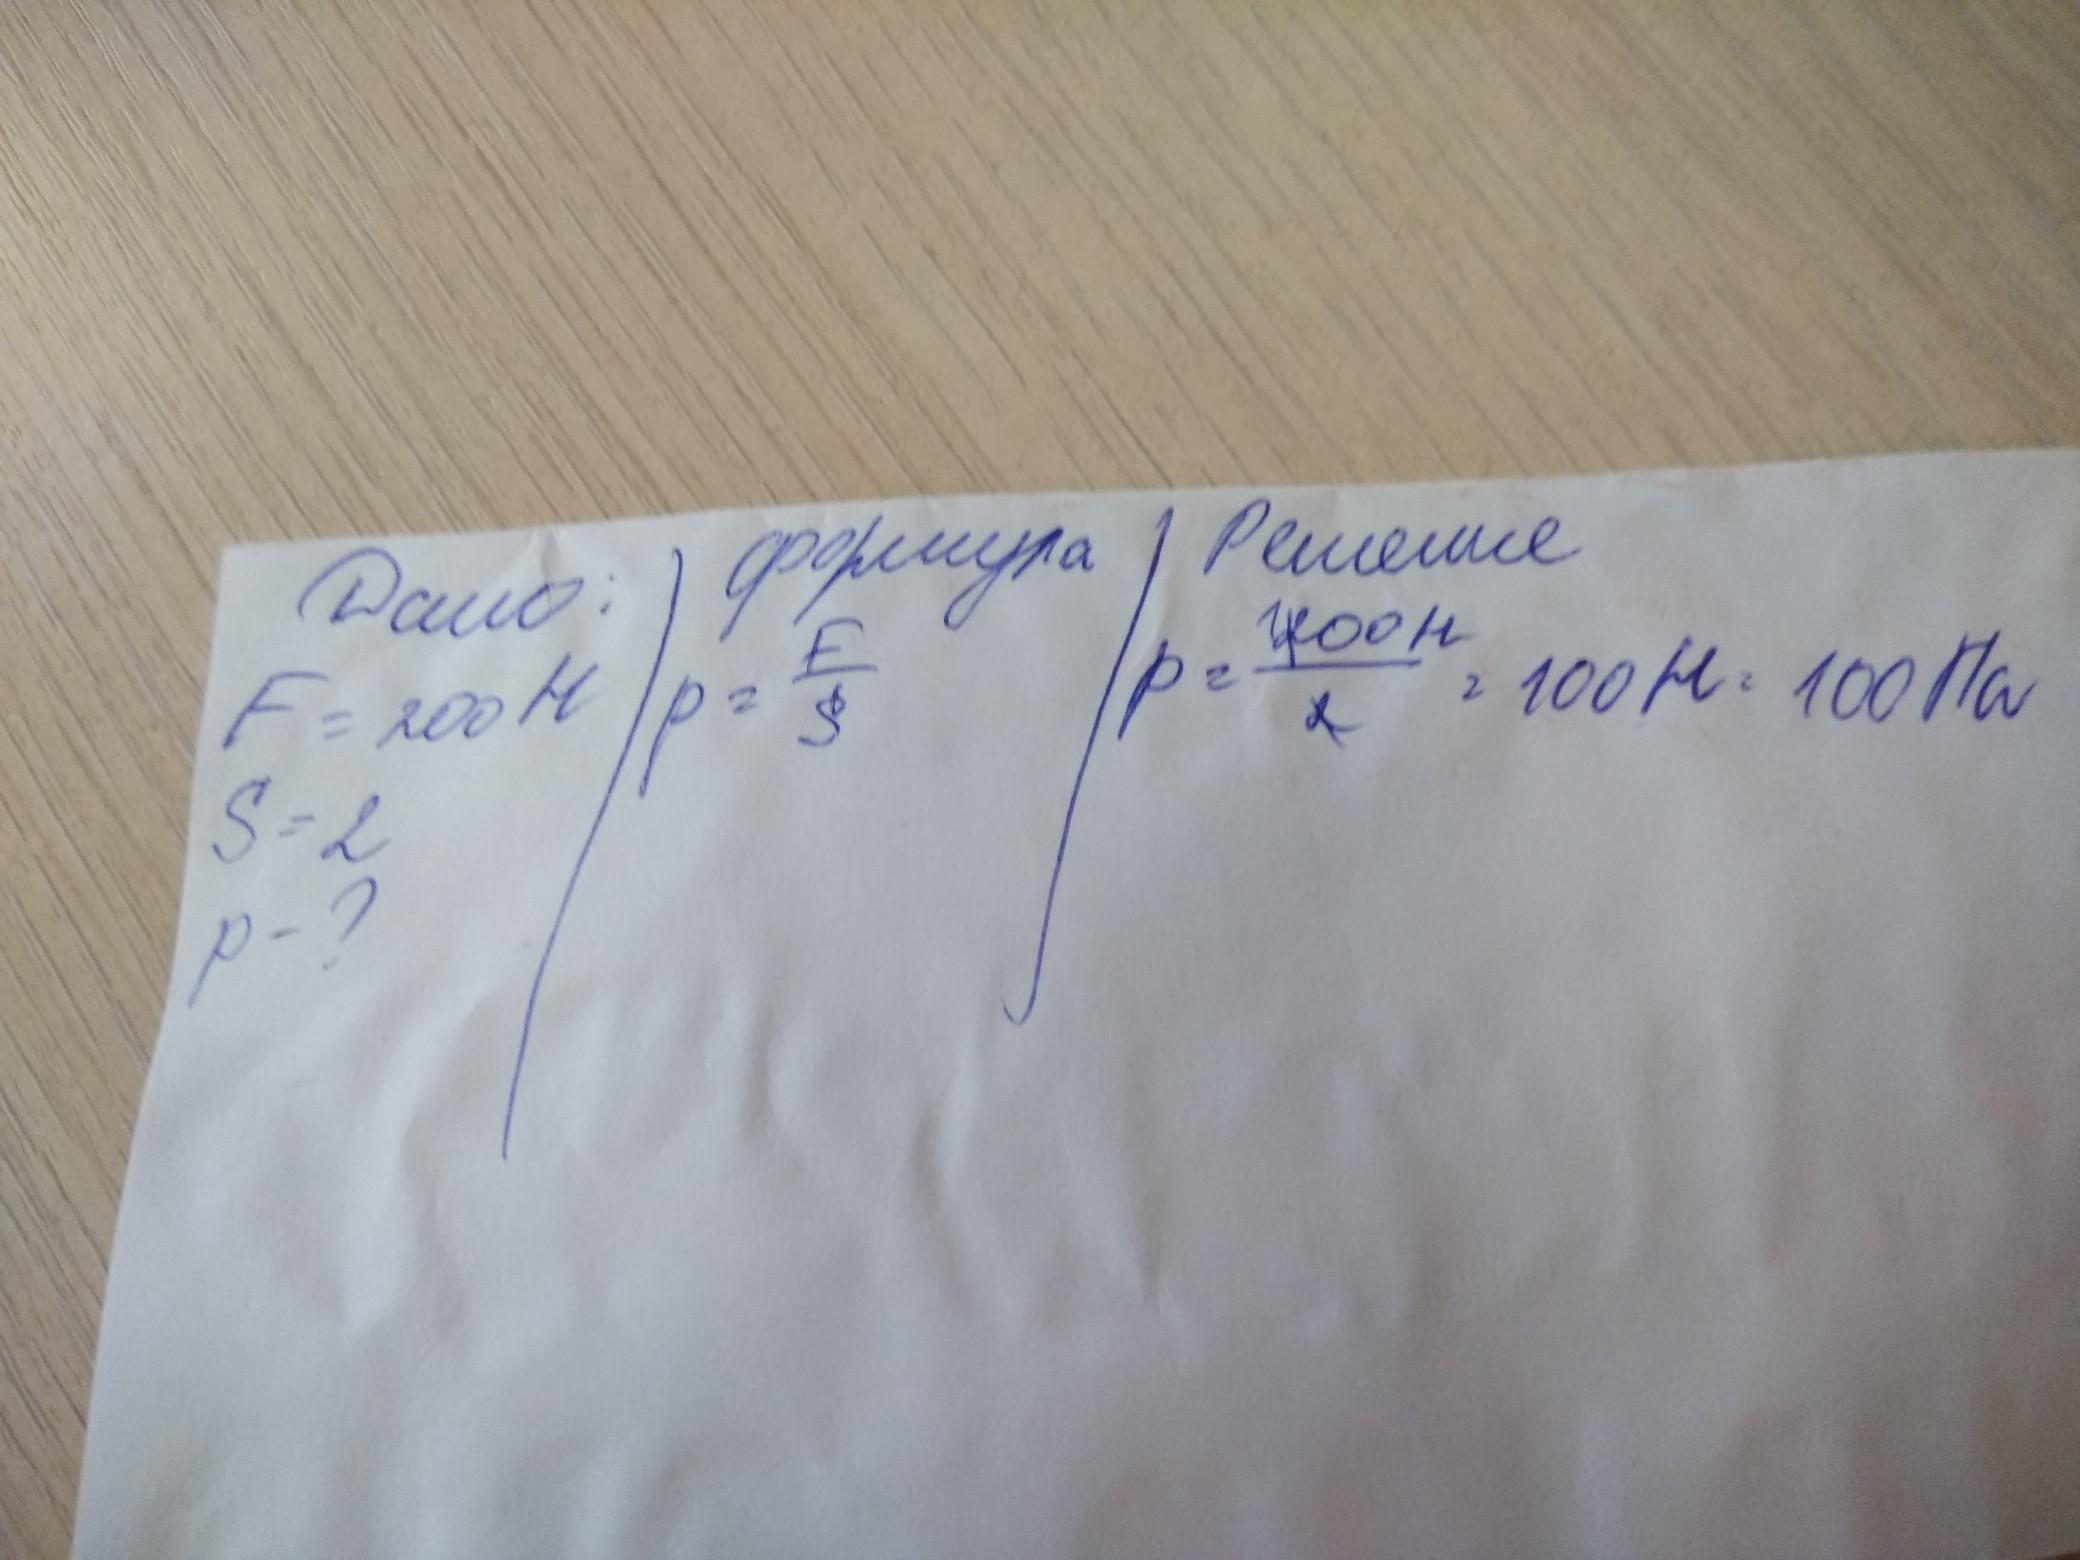 Дано:
F = 200 Н
S = 2
p - ?
формула
p = F/S
Решение
p = 200 Н/2 = 100 Н = 100 Па